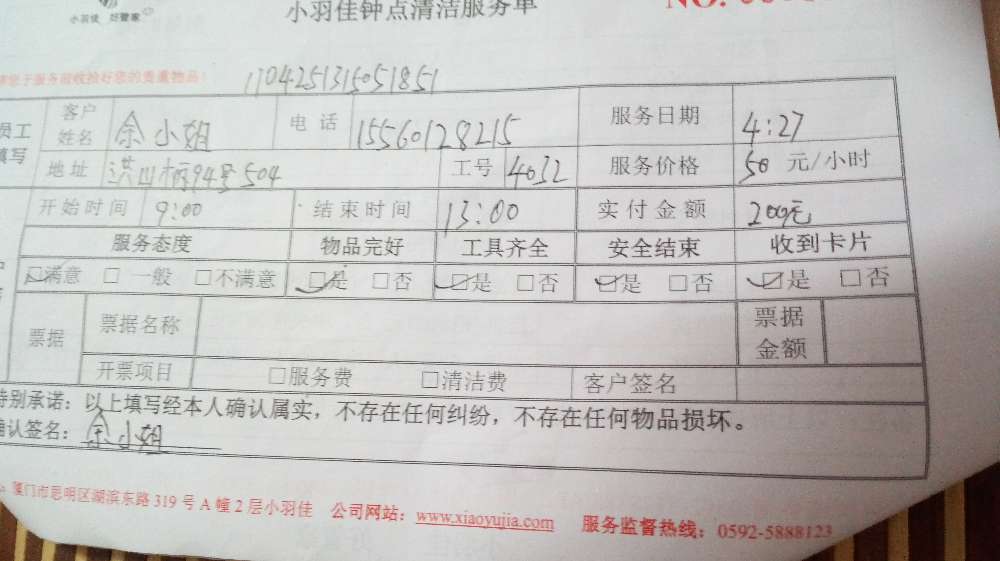 小羽佳 好管家
小羽佳钟点清洁服务单
NO.
于服务前收拾好您的贵重物品!
1104251315051851
员工填写 客户姓名 余小姐 电话 15560128215 服务日期 4:27
地址 洪山柄94号504 工号 4032 服务价格 50 元/小时
开始时间 9:00 结束时间 13:00 实付金额 200元
服务态度 物品完好 工具齐全 安全结束 收到卡片
☑满意 □ 一般 □不满意 ☑是 □否 ☑是 □否 ☑是 □否 ☑是 □否
票据 票据名称 票据金额
开票项目 □服务费 □清洁费 客户签名
特别承诺：以上填写经本人确认属实，不存在任何纠纷，不存在任何物品损坏。
确认签名：余小姐
厦门市思明区湖滨东路 319 号 A 幢 2 层小羽佳 公司网站：www.xiaoyujia.com 服务监督热线：0592-5888123